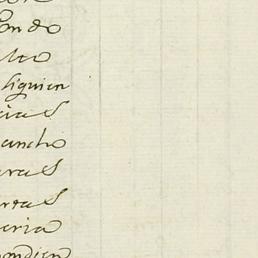 ondo
lto
liguien
cias
ancho
ras
rtas
aria
ondien